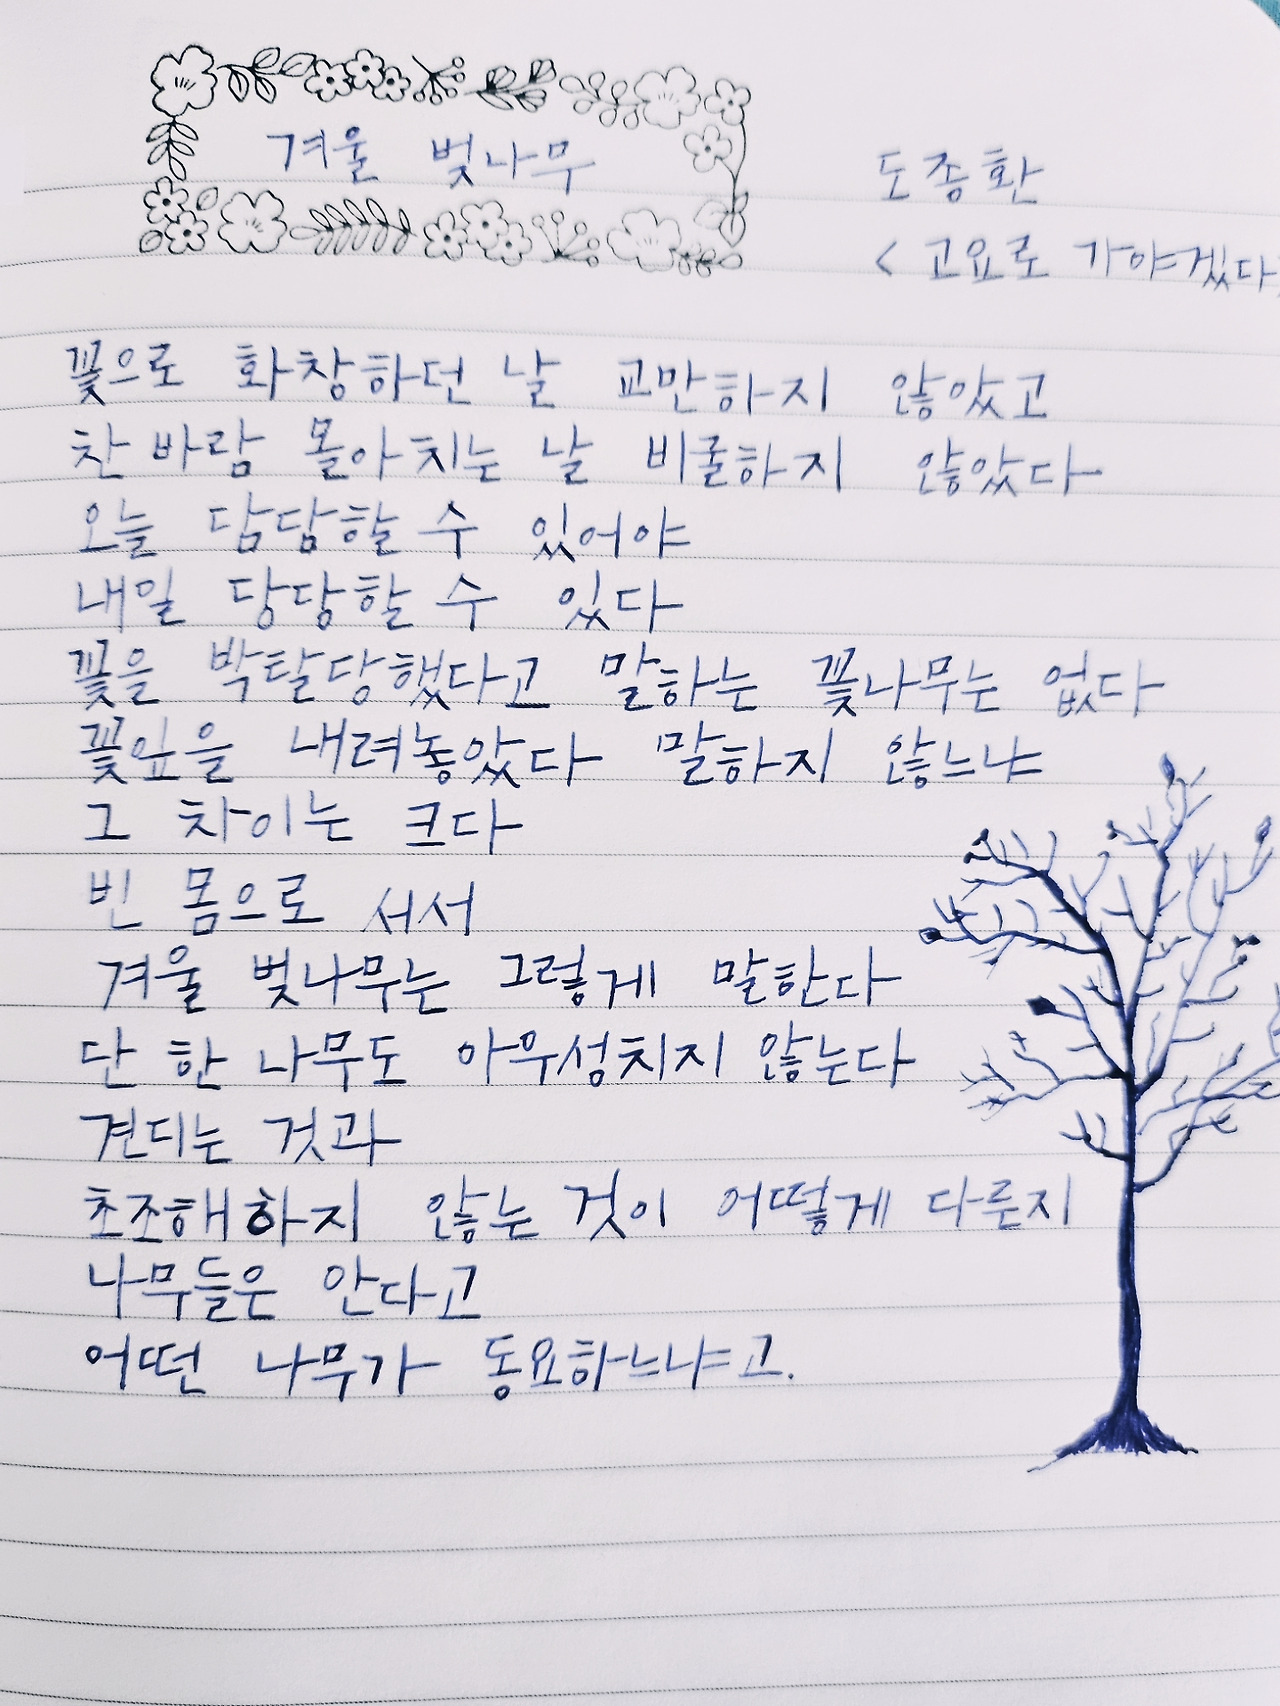 겨울 벚나무
도종환
<고요로 가야겠다>
꽃으로 화창하던 날 교만하지 않았고
찬 바람 몰아치는 날 비굴하지 않았다
오늘 담담할 수 있어야
내일 당당할 수 있다
꽃을 박탈당했다고 말하는 꽃나무는 없다
꽃잎을 내려놓았다 말하지 않느냐
그 차이는 크다
빈 몸으로 서서
겨울 벚나무는 그렇게 말한다
단 한 나무도 아우성치지 않는다
견디는 것과
초조해하지 않는 것이 어떻게 다른지
나무들은 안다고
어떤 나무가 동요하느냐고.